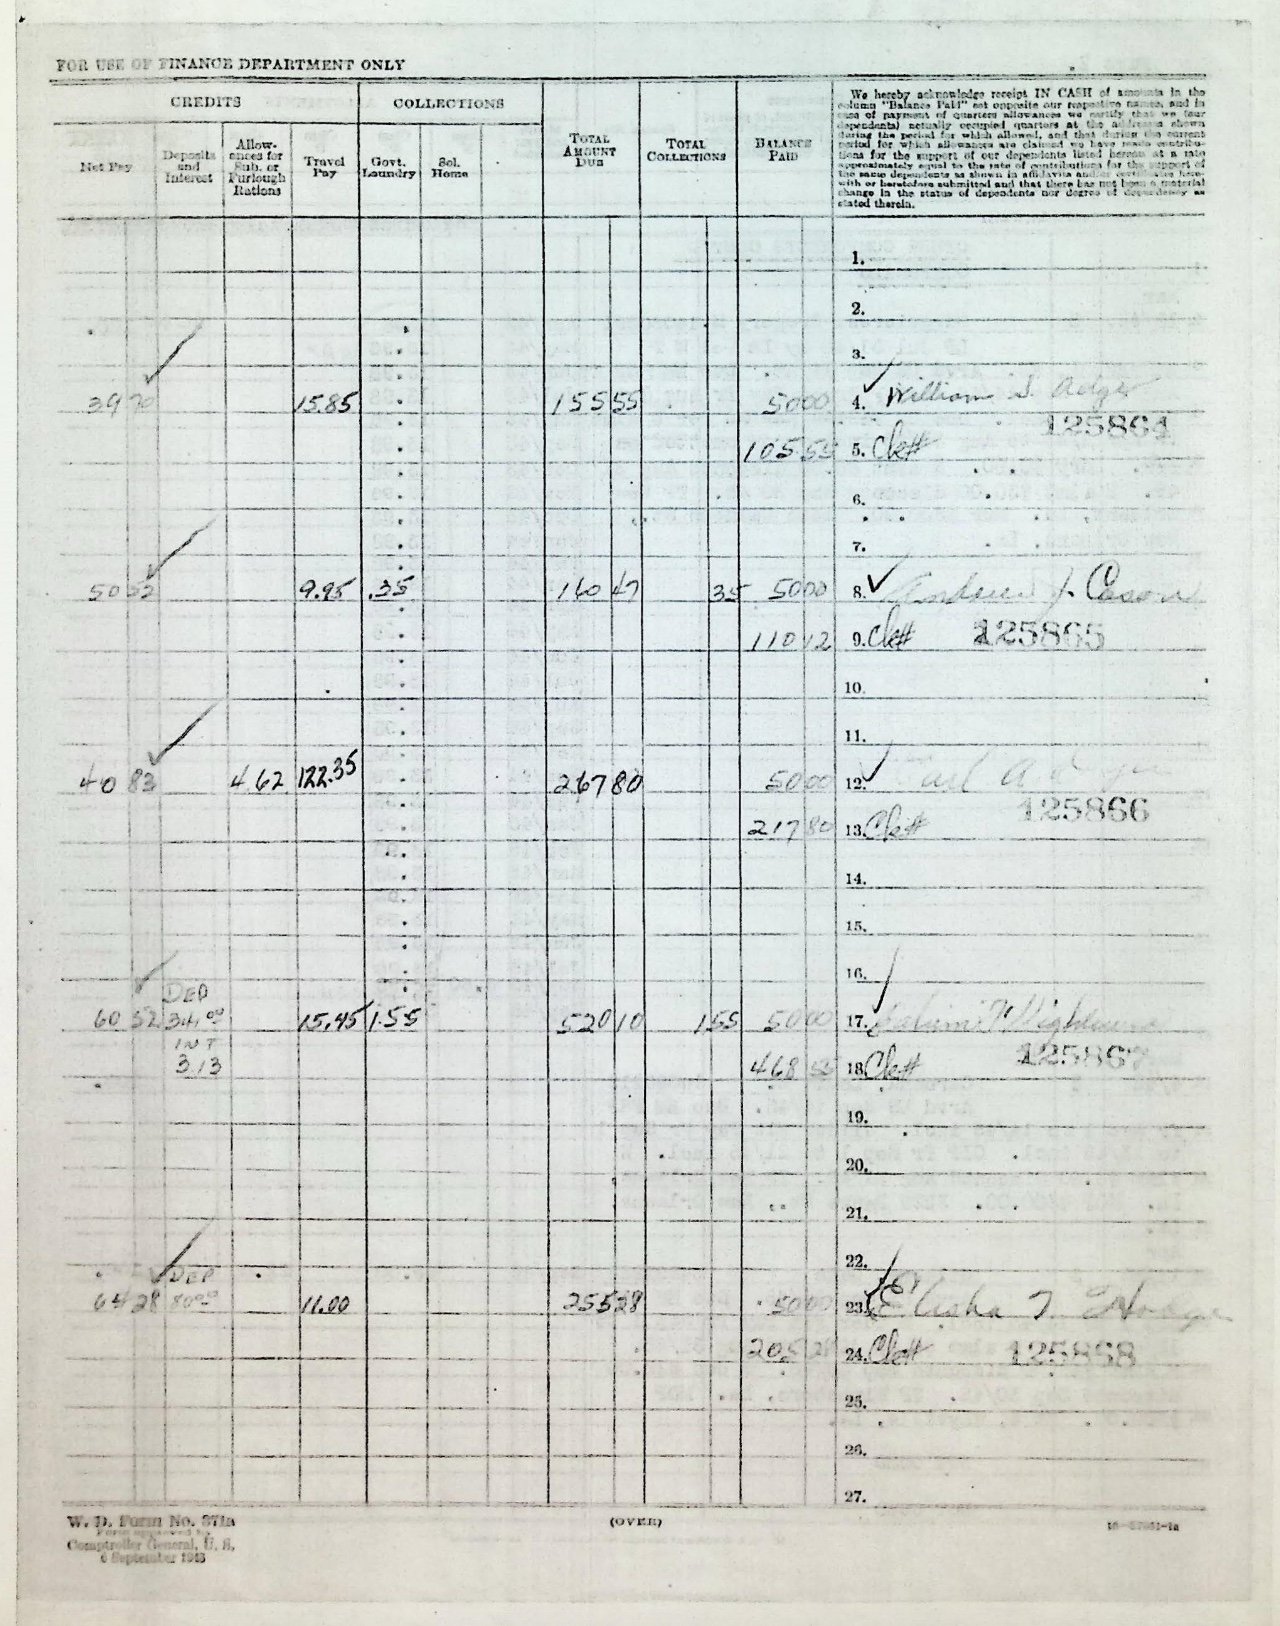 FOR USE OF FINANCE DEPARTMENT ONLY
CREDITS
COLLECTIONS
Net Pay
Deposits and Interest
Allowances for Sub. or Furlough Rations
Travel Pay
Govt. Laundry
Sol. Home
TOTAL AMOUNT DUE
TOTAL COLLECTIONS
BALANCE PAID
We hereby acknowledge receipt IN CASH of amounts in the
column "Balance Paid" set opposite our respective names, and in
case of payment of quarters allowances we certify that we (our
dependents) actually occupied quarters at the addresses shown
during the period for which allowed, and that during the current
period for which allowances are claimed we have made contribu-
tions for the support of our dependents listed hereon at a rate
approximately equal to the rate of contributions for the support of
the same dependents as shown in affidavits and/or certificates here-
with or heretofore submitted and that there has not been a material
change in the status of dependents nor degree of dependency as
stated therein.
1.
2.
3.
39 70 15.85 155 55 50 00 4. William S.
125864
105 55 5. Ck#
6.
7.
50 52 9.95 .35 160 47 35 50 00 8. Andrew J.
110 12 9. Ck# 125865
10.
11.
40 83 4 62 122.35 267 80 50 00 12.
125866
217 80 13. Ck#
14.
15.
16.
DEP
60 52 341 00 15.45 1.55 520 10 1 55 50 00 17.
INT
3.13 468 55 18. Ck# 125867
19.
20.
21.
22.
DEP
64 28 80 00 11.00 255 28 50 00 23. Elisha T
205 28 24. Ck# 125868
25.
26.
27.
W. D. Form No. 371a
Form approved by
Comptroller General, U. S.
6 September 1943
(OVER)